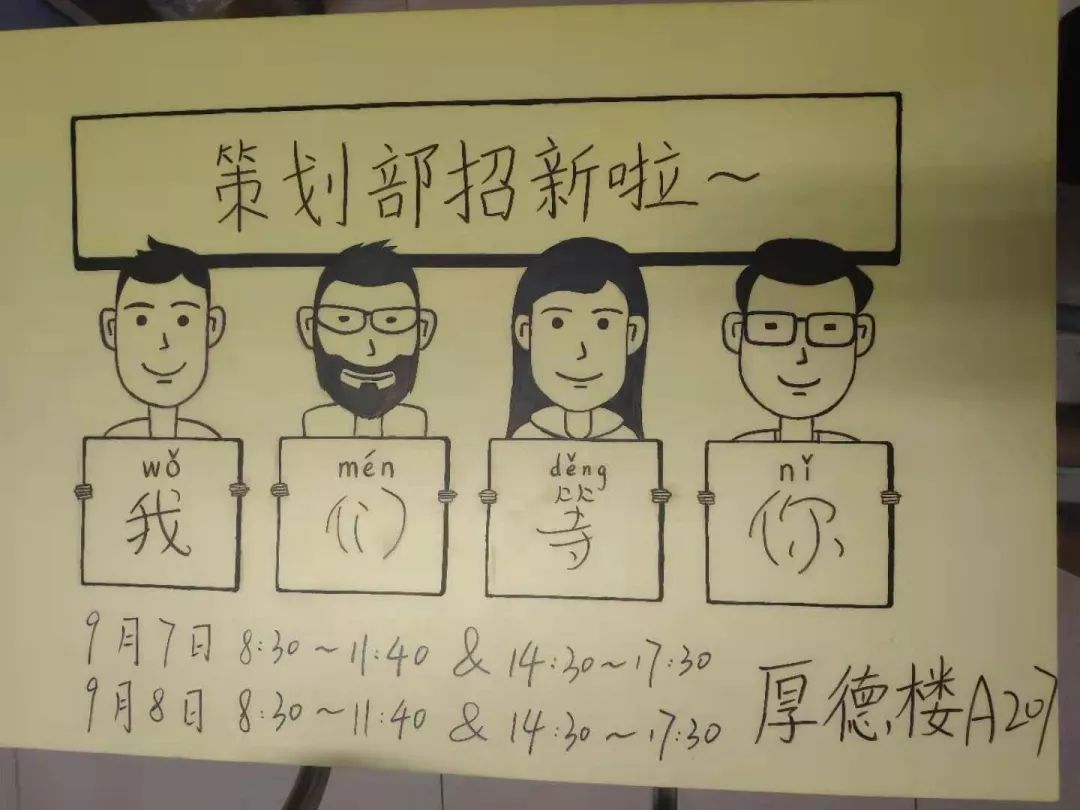 策划部招新啦~
wǒ mén děng nǐ
我 们 等 你
9月7日 8:30~11:40 & 14:30~17:30
9月8日 8:30~11:40 & 14:30~17:30
厚德楼A207